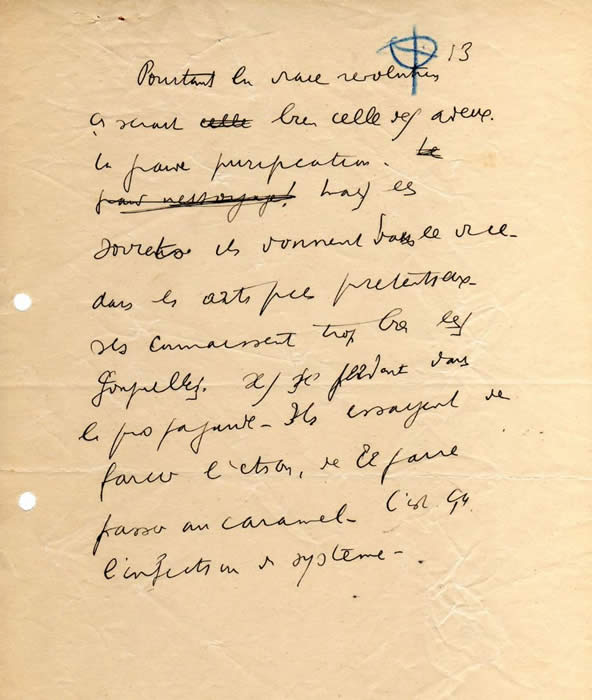 13
Pourtant la vraie revolution
ça serait celle bien celle des aveux.
la grande purification. Le
grand nettoyage! Mais les
Soviets ils donnent dans le vice-
dans les artifices pretentieux-
Ils connaissent trop bien les
Goupilles. Ils se perdent dans
la propagande- Ils essayent de
farcir l'étron, de le faire
passer au caramel- C'est ça
l'infection du système-